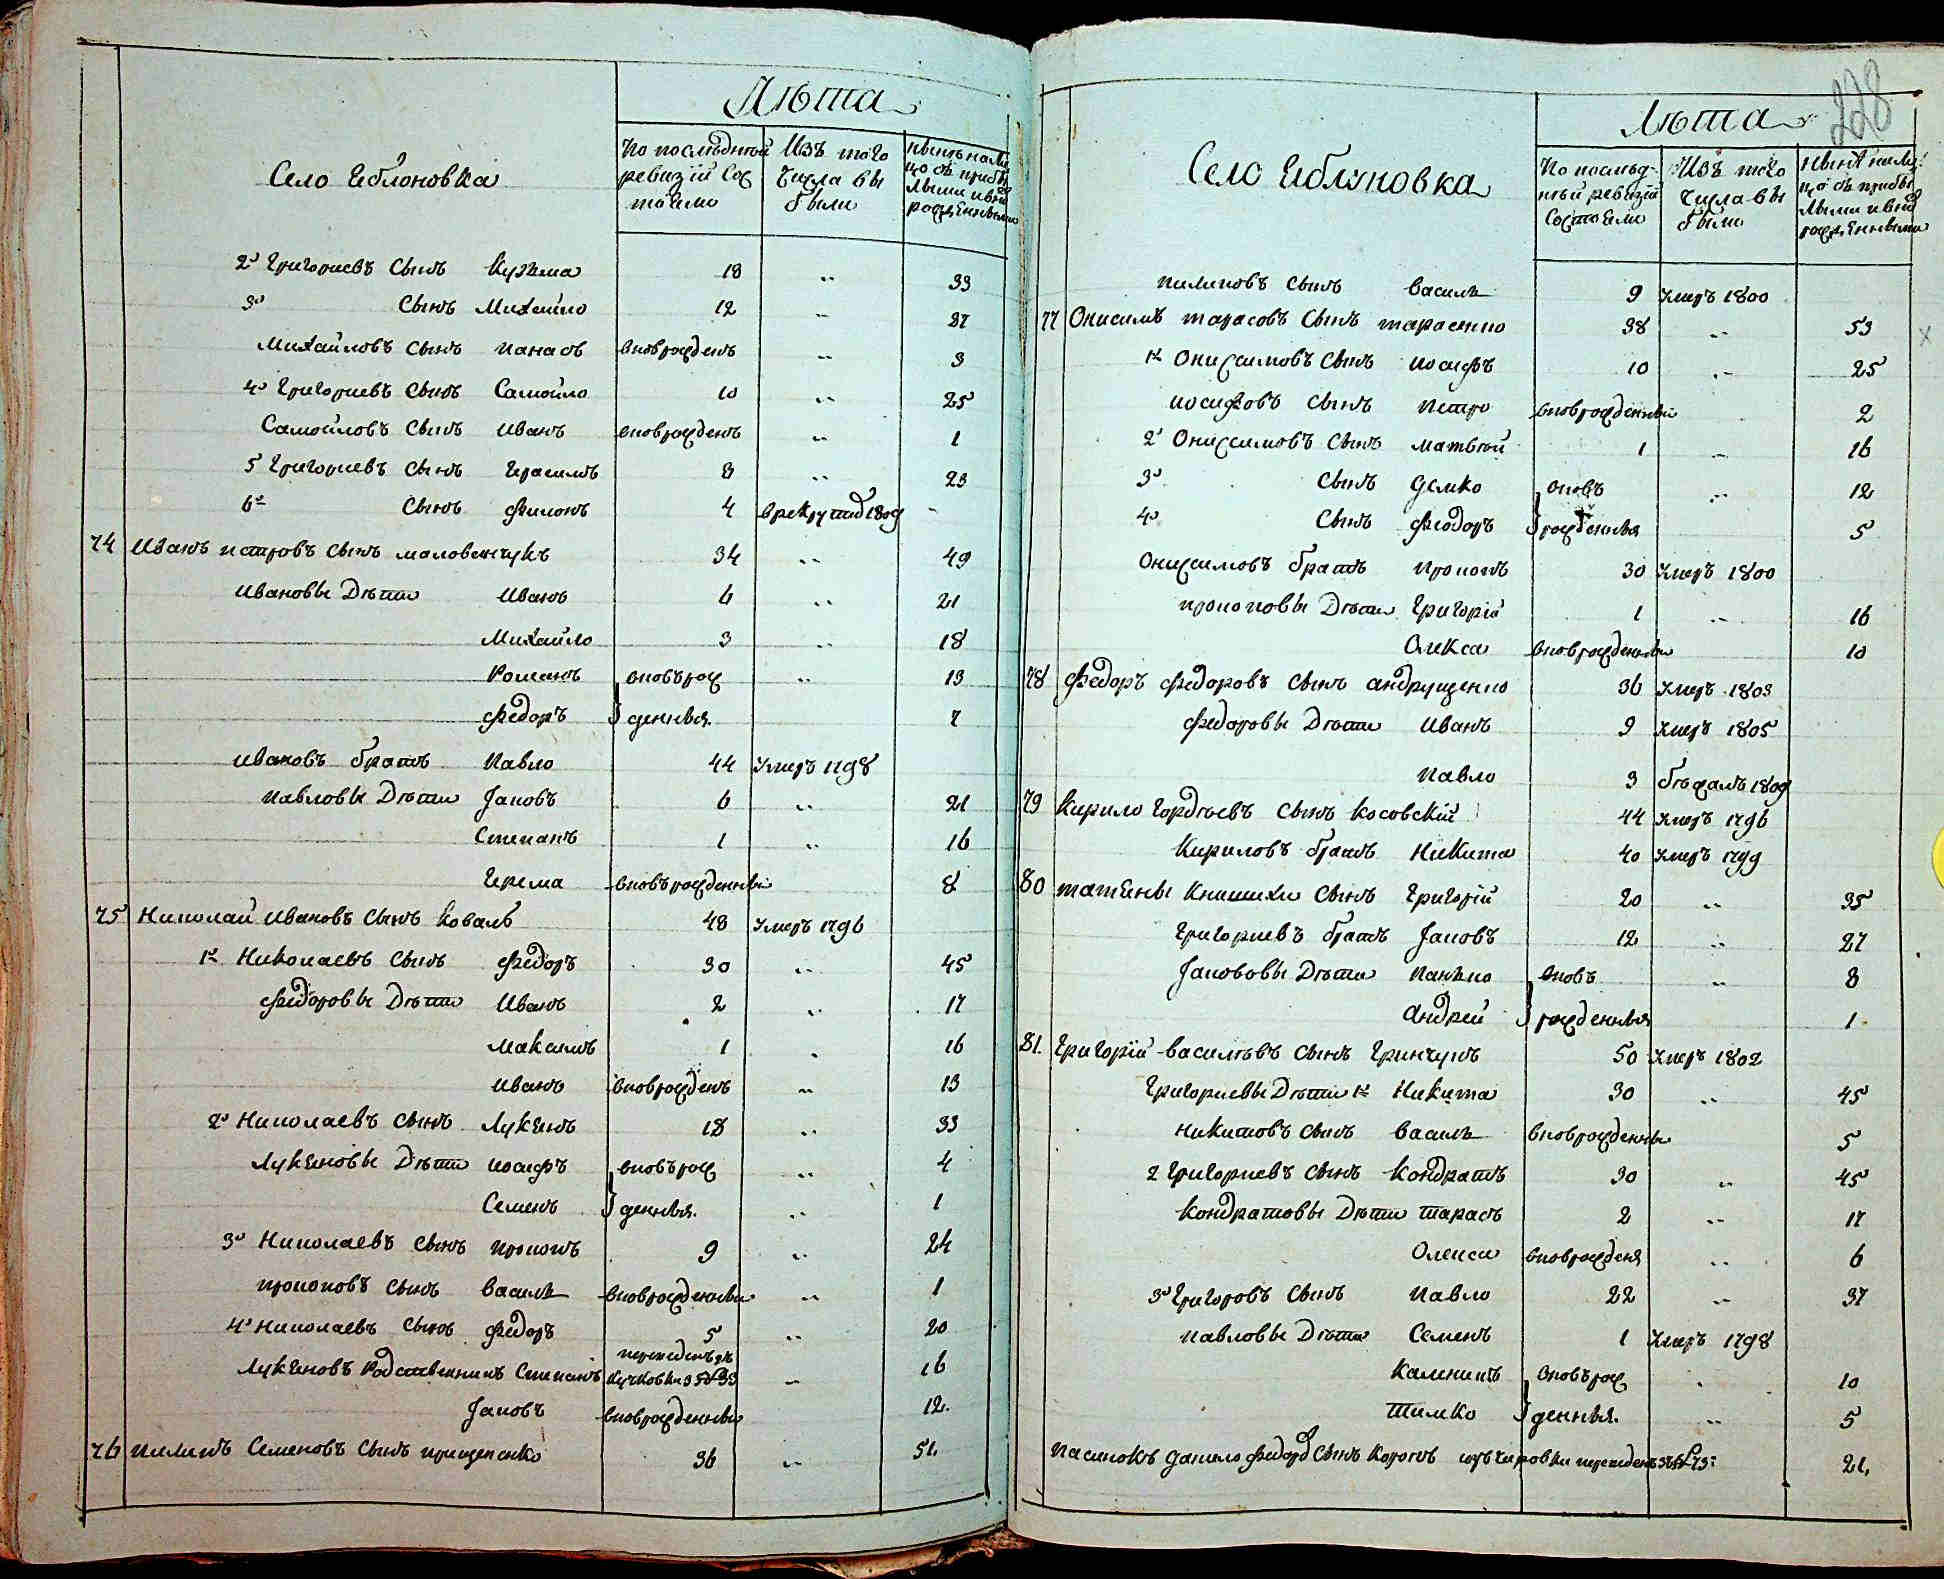 Лѣта
Село Яблоновка
По последней ревизій Состояли
Изъ того Числа Выбыли
Нынѣ на лицо съ прибылыми и вновь рожденными
2й Григориевъ Сынъ Кузима 18 „ 33
3й Сынъ Михайло 12 „ 27
Михайловъ Сынъ Панасъ вноврожденъ „ 3
4й Григориевъ Сынъ Самойло 10 „ 25
Самойловъ Сынъ Иванъ вноврожденъ „ 1
5 Григориевъ Сынъ Герасимъ 8 „ 23
6й Сынъ Филонъ 4 врекруты 1809 „
74 Иванъ Петровъ Сынъ 34 „ 49
Ивановы Дѣти Иванъ 6 „ 21
Михайло 3 „ 18
Романъ вновърож „ 13
Федоръ денныя 7
Ивановъ братъ Павло 44 Умеръ 1798
Павловы Дѣти Яковъ 6 „ 21
Степанъ 1 „ 16
Ярема вновърожденный 8
75 Николай Ивановъ Сынъ Коваль 48 Умеръ 1796
1й Николаевъ Сынъ Федоръ 30 „ 45
Федоровы Дѣти Иванъ 2 „ 17
Максимъ 1 „ 16
Иванъ вноврожденъ „ 13
2й Николаевъ Сынъ Лукянъ 18 „ 33
Лукяновы Дѣти Иосифъ вновърож „ 4
Семенъ денныя. „ 1
3й Николаевъ Сынъ Прокопъ 9 „ 24
Прокоповъ Сынъ Василь вноврожденный „ 1
4й Николаевъ Сынъ Федоръ 5 „ 20
Лукяновъ Родственникъ Степанъ „ 16
Яковъ вноврожденный 12.
76 Пилипъ Семеновъ Сынъ Прищепенко 36 „ 51.
228
Лѣта
Село Яблуновка
По послед-ней ревизій Состояли
Изъ того Числа Выбыли
Нынѣ налицо съ прибылыми и внов рожденными
Пилиповъ Сынъ Василь 9 Умеръ 1800
77 Онисимъ Тарасовъ Сынъ Тарасенко 38 „ 53
1й Онисимовъ Сынъ Иосифъ 10 „ 25
Иосифовъ Сынъ Петро вноврожденный 2
2й Онисимовъ Сынъ Матвѣй 1 „ 16
3й Сынъ Демко вновъ „ 12
4й Сынъ Феодоръ рожденныя 5
Онисимовъ братъ Прокопъ 30 Умеръ 1800
Прокоповы Дѣти Григорій 1 „ 16
Олекса вноврожденный 10
78 Федоръ Федоровъ Сынъ Андрущенко 36 Умеръ 1803
Федоровы Дѣти Иванъ 9 Умеръ 1805
Павло 3 бѣжалъ 1809
79 Кирило Гордѣевъ Сынъ Косовскій 44 Умеръ 1796
Кириловъ братъ Никита 40 Умеръ 1799
80 Татяны Книшихи Сынъ Григорій 20 „ 35
Григориевъ братъ Яковъ 12 „ 27
Якововы Дѣти Панько вновъ „ 8
Андрей рожденныя 1
81. Григорій Василѣвъ Сынъ Гринчукъ 50 Умеръ 1802
Григориевы Дѣти 1й Никита 30 „ 45
Никитовъ Сынъ Василь вноврожденный 5
2 Григориевъ Сынъ Кондратъ 30 „ 45
Кондратовы Дѣти Тарасъ 2 „ 17
Олекса вноврожденя „ 6
3й Григоровъ Сынъ Павло 22 „ 37
Павловы Дѣти Семенъ 1 Умеръ 1798
Каленикъ вновърож „ 10
Тимко денныя. „ 5
Пасинокъ Данило Федоровъ Сынъ 21.